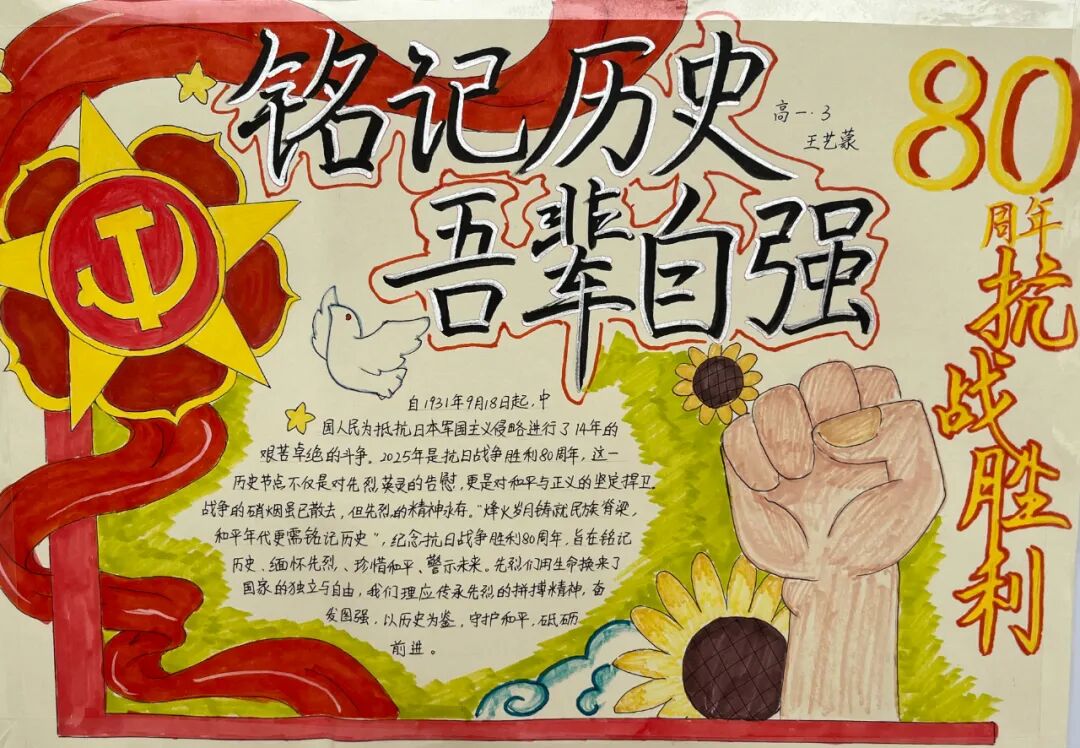 铭记历史
吾辈自强
高一.3
王艺蒙
80
周年
抗战胜利
自1931年9月18日起,中
国人民为抵抗日本军国主义侵略进行了14年的
艰苦卓绝的斗争。2025年是抗日战争胜利80周年,这一
历史节点不仅是对先烈英灵的告慰,更是对和平与正义的坚定捍卫。
战争的硝烟虽已散去,但先烈的精神永存。“烽火岁月铸就民族脊梁,
和平年代更需铭记历史”,纪念抗日战争胜利80周年,旨在铭记
历史、缅怀先烈、珍惜和平、警示未来。先烈们用生命换来了
国家的独立与自由,我们理应传承先烈的拼搏精神,奋
发图强,以历史为鉴,守护和平,砥砺
前进。